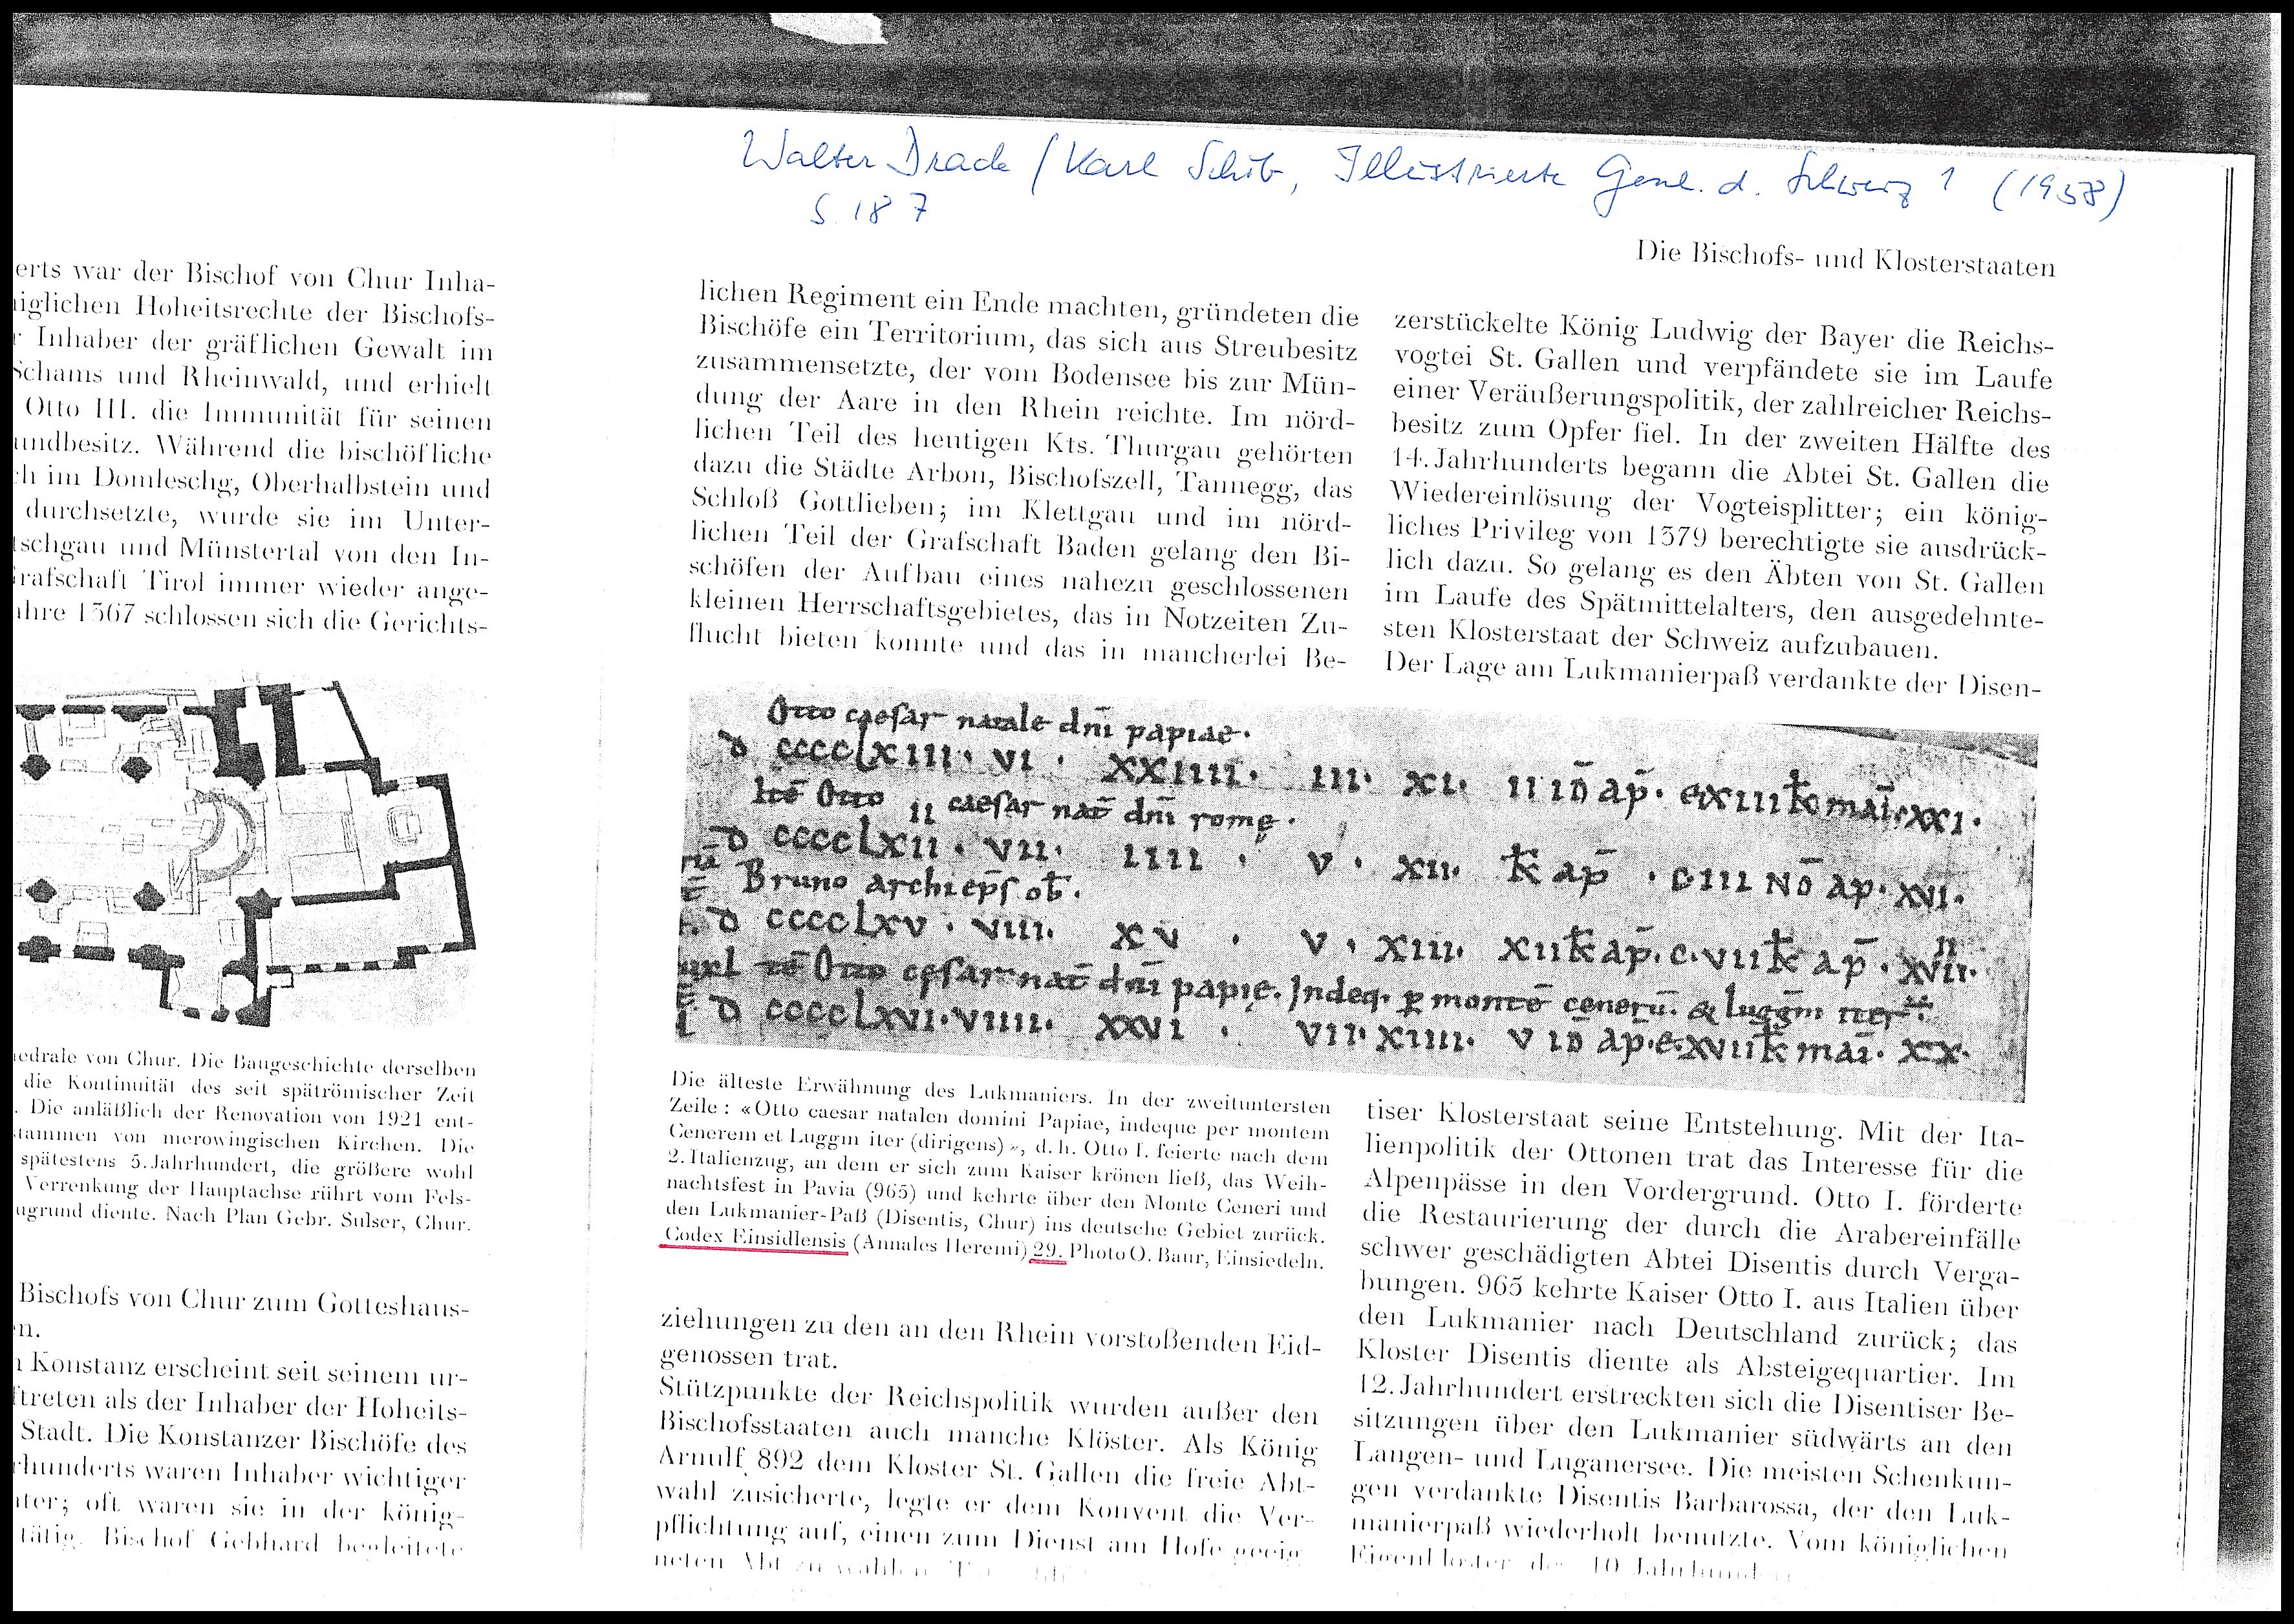 Walter Drack / Karl Schib, Illustrierte Gesch. d. Schweiz 1 (1958)
S. 187
Die Bischofs- und Klosterstaaten
erts war der Bischof von Chur Inha-
niglichen Hoheitsrechte der Bischofs-
r Inhaber der gräflichen Gewalt im
Schams und Rheinwald, und erhielt
Otto III. die Immunität für seinen
undbesitz. Während die bischöfliche
ch im Domleschg, Oberhalbstein und
durchsetzte, wurde sie im Unter-
tschgau und Münstertal von den In-
Grafschaft Tirol immer wieder ange-
ahre 1367 schlossen sich die Gerichts-
edrale von Chur. Die Baugeschichte derselben
die Kontinuität des seit spätrömischer Zeit
. Die anläßlich der Renovation von 1921 ent-
stammen von merowingischen Kirchen. Die
spätestens 5. Jahrhundert, die größere wohl
Verrenkung der Hauptachse rührt vom Fels-
ugrund diente. Nach Plan Gebr. Sulser, Chur.
Bischofs von Chur zum Gotteshaus-
n.
n Konstanz erscheint seit seinem ur-
ftreten als der Inhaber der Hoheits-
Stadt. Die Konstanzer Bischöfe des
rhunderts waren Inhaber wichtiger
ter; oft waren sie in der könig-
tätig. Bischof Gebhard begleitete
lichen Regiment ein Ende machten, gründeten die
Bischöfe ein Territorium, das sich aus Streubesitz
zusammensetzte, der vom Bodensee bis zur Mün-
dung der Aare in den Rhein reichte. Im nörd-
lichen Teil des heutigen Kts. Thurgau gehörten
dazu die Städte Arbon, Bischofszell, Tannegg, das
Schloß Gottlieben; im Klettgau und im nörd-
lichen Teil der Grafschaft Baden gelang den Bi-
schöfen der Aufbau eines nahezu geschlossenen
kleinen Herrschaftsgebietes, das in Notzeiten Zu-
flucht bieten konnte und das in mancherlei Be-
Otto caesar natale dnī papiae.
d cccclxiii. vi. xxiiii. iii. xi. ii id ap. xxi.
Otto ii caesar nat dnī rome.
d cccclxii. vii. iiii. v. xii. k ap. c iii no ap. xvi.
Bruno archieps ob.
d cccclxv. viii. xv. v. xiii. xii k ap. c. vii k ap.
Otto cesar nat dnī papie. Indeq. p monte cenerū. & luggm iter
d cccclxvi. viiii. xxvi. vii. xiiii. v id ap. e. xvii k mai. xx.
Die älteste Erwähnung des Lukmaniers. In der zweituntersten
Zeile: «Otto caesar natalen domini Papiae, indeque per montem
Cenerem et Luggm iter (dirigens)», d. h. Otto I. feierte nach dem
2. Italienzug, an dem er sich zum Kaiser krönen ließ, das Weih-
nachtsfest in Pavia (965) und kehrte über den Monte Ceneri und
den Lukmanier-Paß (Disentis, Chur) ins deutsche Gebiet zurück.
Codex Einsidlensis (Annales Heremi) 29. Photo O. Baur, Einsiedeln.
ziehungen zu den an den Rhein vorstoßenden Eid-
genossen trat.
Stützpunkte der Reichspolitik wurden außer den
Bischofsstaaten auch manche Klöster. Als König
Arnulf 892 dem Kloster St. Gallen die freie Abt-
wahl zusicherte, legte er dem Konvent die Ver-
pflichtung auf, einen zum Dienst am Hofe geeig
neten Abt zu wählen.
zerstückelte König Ludwig der Bayer die Reichs-
vogtei St. Gallen und verpfändete sie im Laufe
einer Veräußerungspolitik, der zahlreicher Reichs-
besitz zum Opfer fiel. In der zweiten Hälfte des
14. Jahrhunderts begann die Abtei St. Gallen die
Wiedereinlösung der Vogteisplitter; ein könig-
liches Privileg von 1379 berechtigte sie ausdrück-
lich dazu. So gelang es den Äbten von St. Gallen
im Laufe des Spätmittelalters, den ausgedehnte-
sten Klosterstaat der Schweiz aufzubauen.
Der Lage am Lukmanierpaß verdankte der Disen-
tiser Klosterstaat seine Entstehung. Mit der Ita-
lienpolitik der Ottonen trat das Interesse für die
Alpenpässe in den Vordergrund. Otto I. förderte
die Restaurierung der durch die Arabereinfälle
schwer geschädigten Abtei Disentis durch Verga-
bungen. 965 kehrte Kaiser Otto I. aus Italien über
den Lukmanier nach Deutschland zurück; das
Kloster Disentis diente als Absteigequartier. Im
12. Jahrhundert erstreckten sich die Disentiser Be-
sitzungen über den Lukmanier südwärts an den
Langen- und Luganersee. Die meisten Schenkun-
gen verdankte Disentis Barbarossa, der den Luk-
manierpaß wiederholt benutzte. Vom königlichen